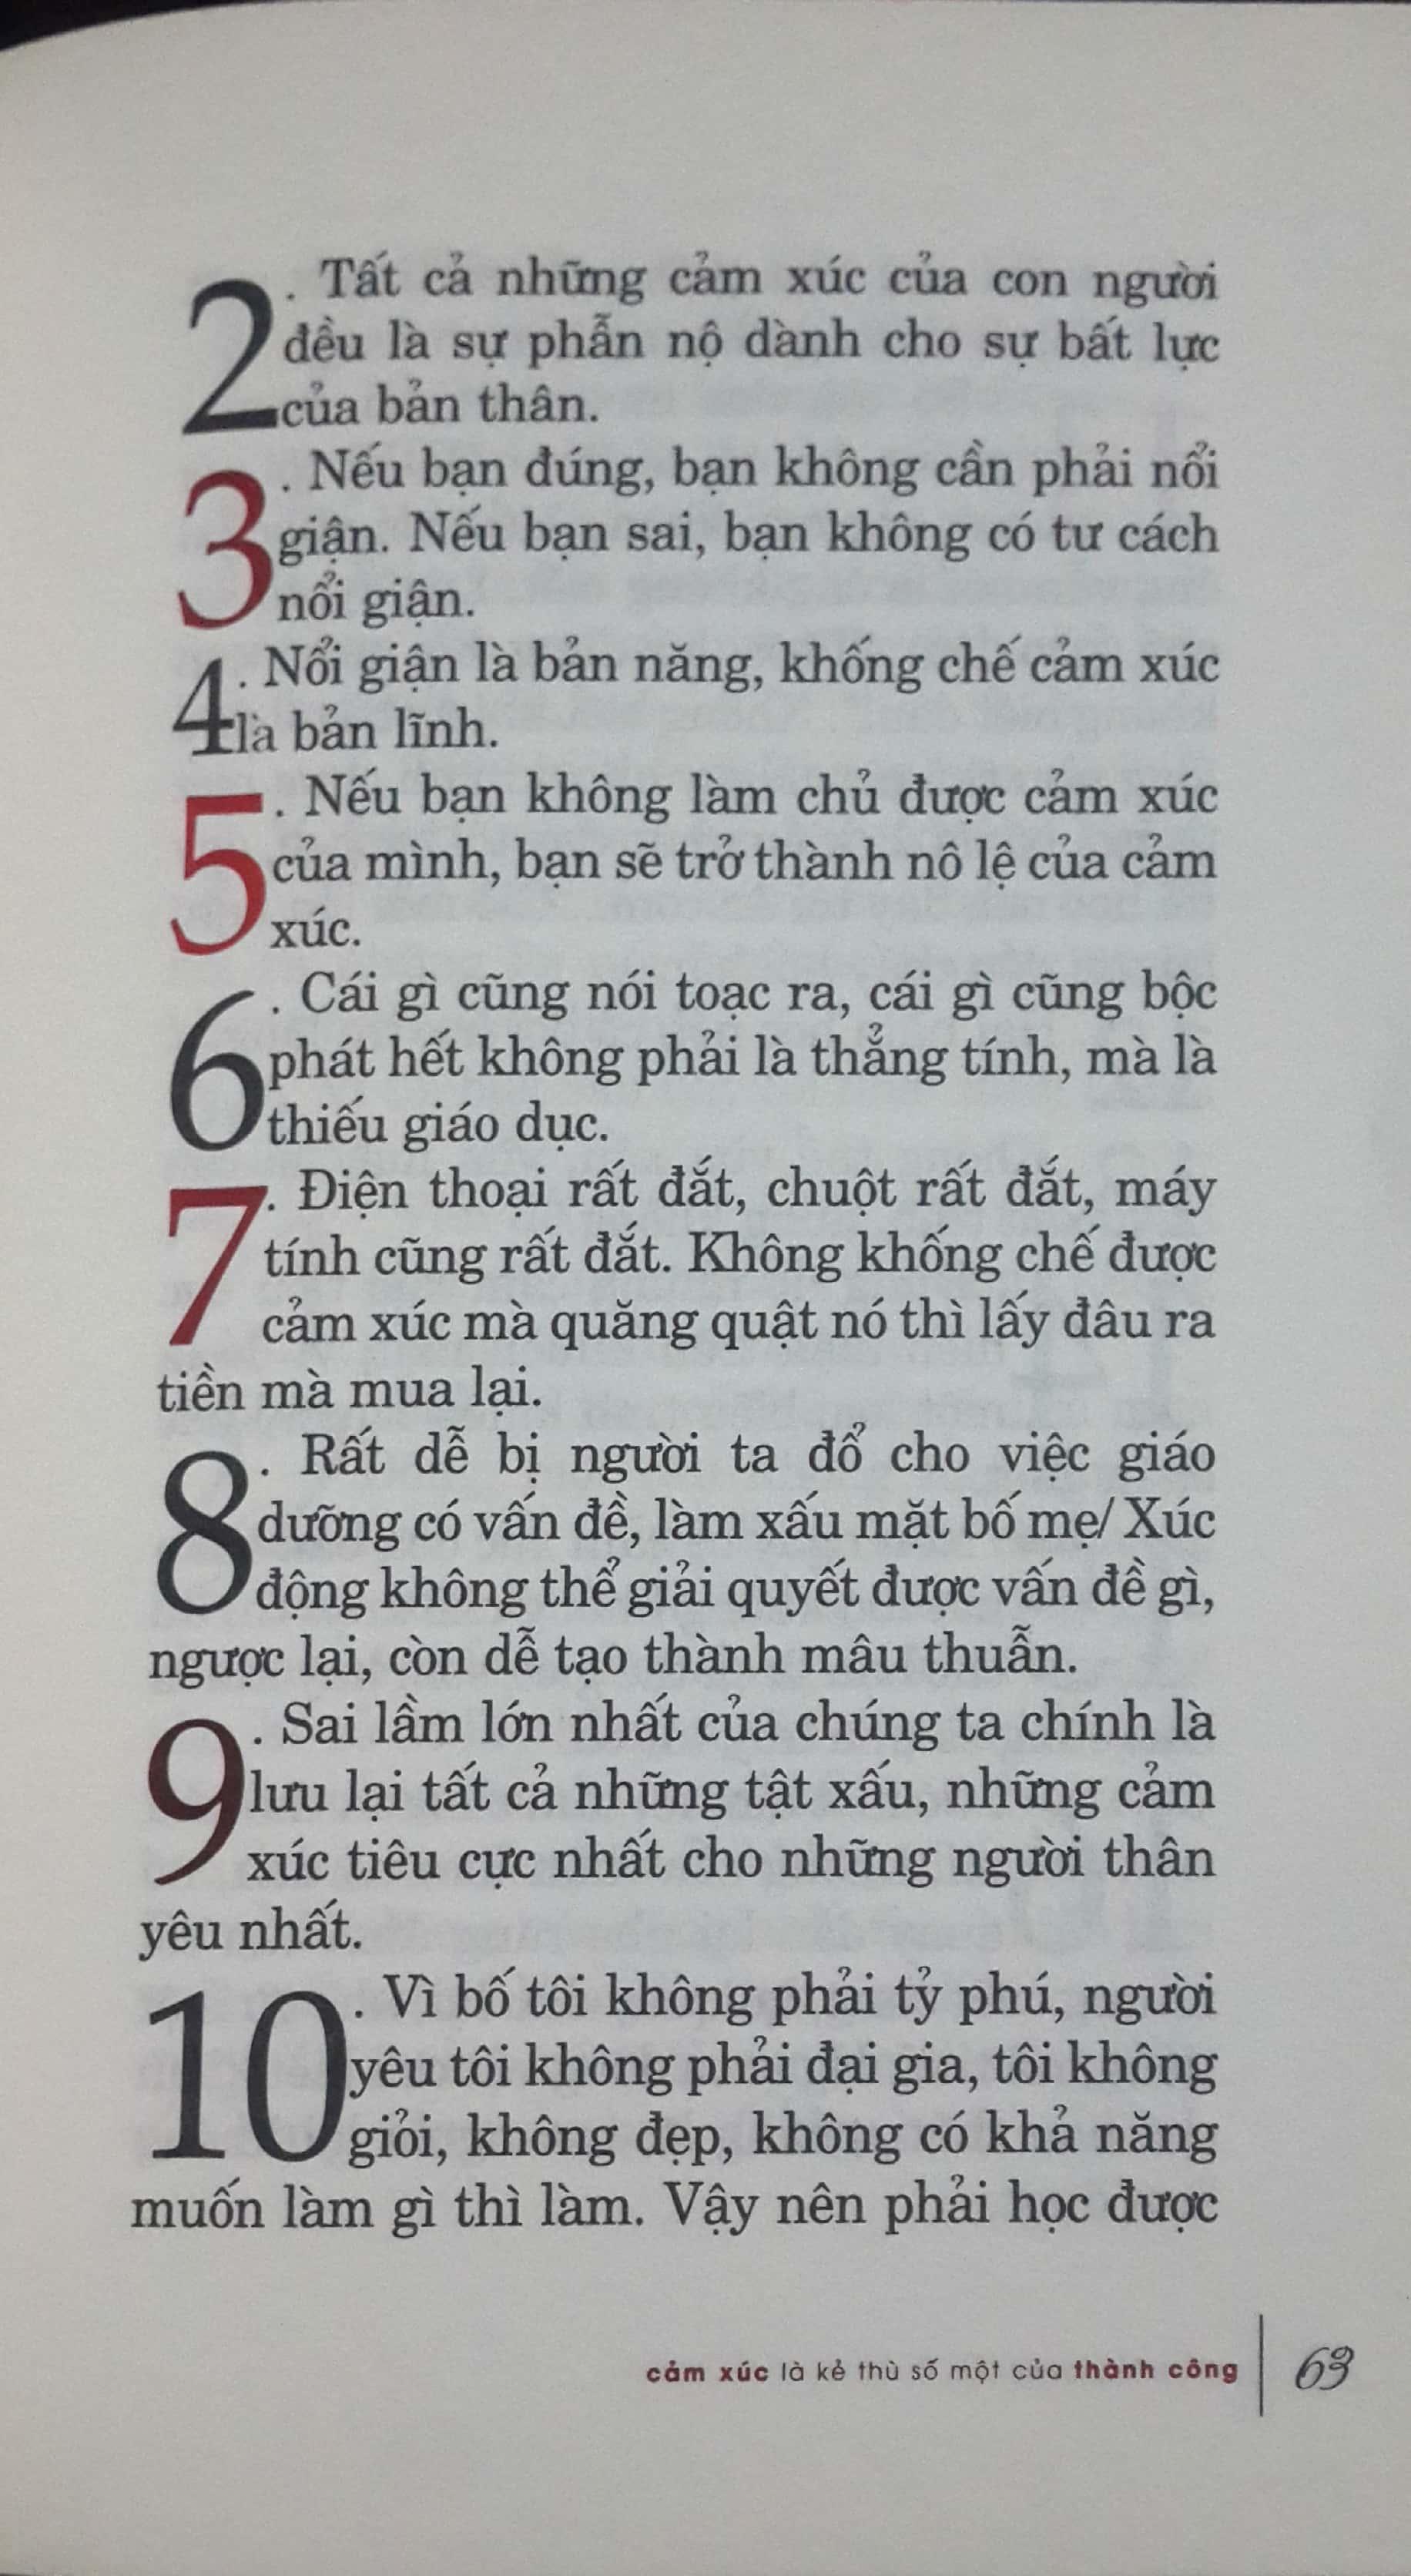 2. Tất cả những cảm xúc của con người
đều là sự phẫn nộ dành cho sự bất lực
của bản thân.
3. Nếu bạn đúng, bạn không cần phải nổi
giận. Nếu bạn sai, bạn không có tư cách
nổi giận.
4. Nổi giận là bản năng, khống chế cảm xúc
là bản lĩnh.
5. Nếu bạn không làm chủ được cảm xúc
của mình, bạn sẽ trở thành nô lệ của cảm
xúc.
6. Cái gì cũng nói toạc ra, cái gì cũng bộc
phát hết không phải là thẳng tính, mà là
thiếu giáo dục.
7. Điện thoại rất đắt, chuột rất đắt, máy
tính cũng rất đắt. Không khống chế được
cảm xúc mà quăng quật nó thì lấy đâu ra
tiền mà mua lại.
8. Rất dễ bị người ta đổ cho việc giáo
dưỡng có vấn đề, làm xấu mặt bố mẹ/ Xúc
động không thể giải quyết được vấn đề gì,
ngược lại, còn dễ tạo thành mâu thuẫn.
9. Sai lầm lớn nhất của chúng ta chính là
lưu lại tất cả những tật xấu, những cảm
xúc tiêu cực nhất cho những người thân
yêu nhất.
10. Vì bố tôi không phải tỷ phú, người
yêu tôi không phải đại gia, tôi không
giỏi, không đẹp, không có khả năng
muốn làm gì thì làm. Vậy nên phải học được
cảm xúc là kẻ thù số một của thành công 63